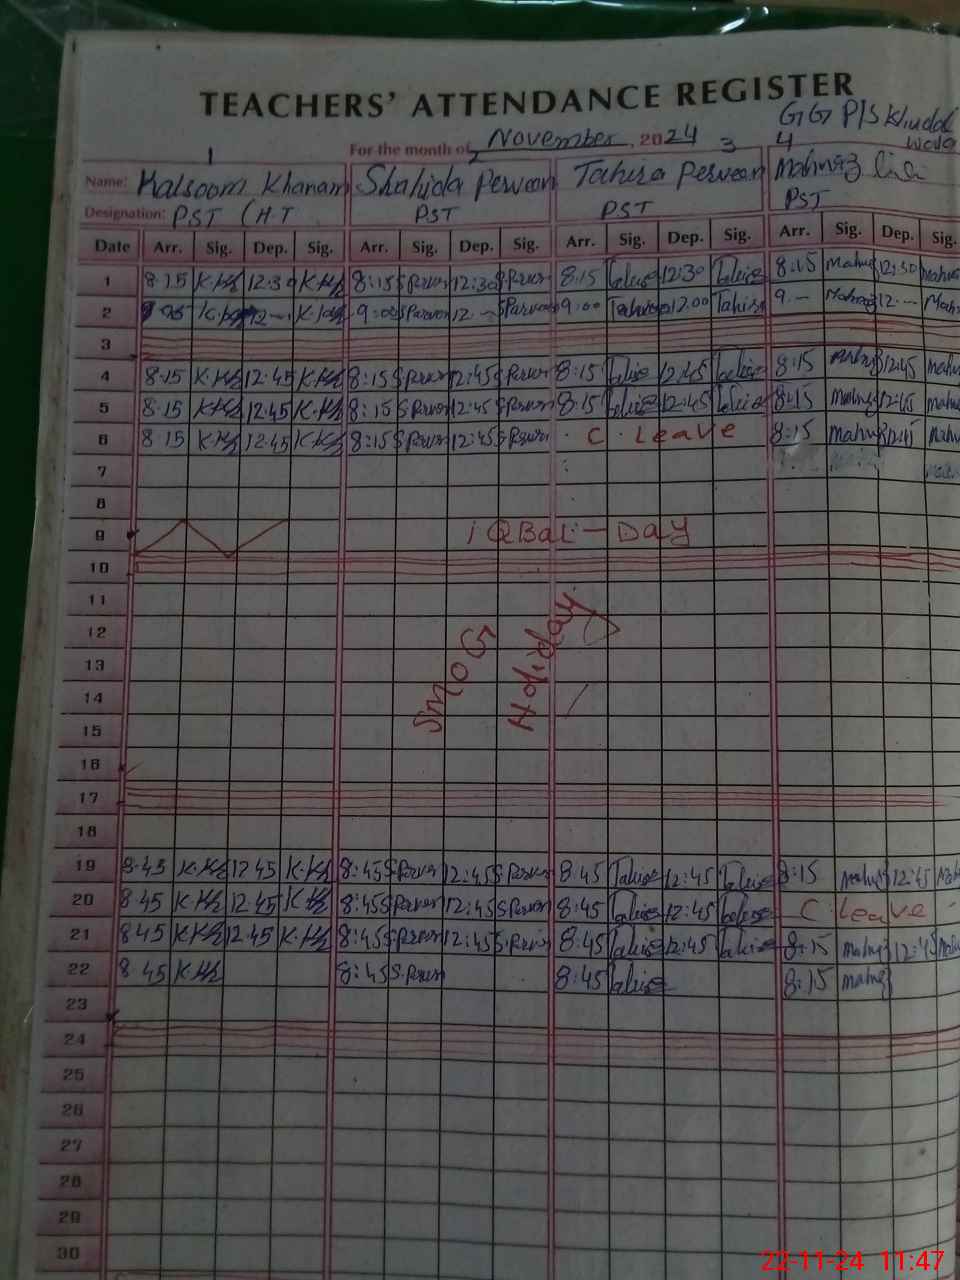 TEACHERS' ATTENDANCE REGISTER
GG P/S
For the month of November 2024
1 2 3 4
Name: Kalsoom Khanam Shahida Perveen Tahira Perveen Mahnaz
Designation: PST (H.T PST PST PST
Date Arr. Sig. Dep. Sig. Arr. Sig. Dep. Sig. Arr. Sig. Dep. Sig. Arr. Sig. Dep. Sig.
1 8:15 K.Kh 12:30 K.Kh 8:15 S.Parveen 12:30 S.Parveen 8:15 Tahira 12:30 Tahira 8:15 Mahnaz 12:30 Mahnaz
2 K.Kh 12 — K.Kh 9:00 S.Parveen 12 — S.Parveen 9:00 Tahira 12.00 Tahira 9 — Mahnaz 12 — Mahnaz
3
4 8:15 K.Kh 12:45 K.Kh 8:15 S.Parveen 12:45 S.Parveen 8:15 Tahira 12:45 Tahira 8:15 Mahnaz 12:45 Mahnaz
5 8:15 K.Kh 12:45 K.Kh 8:15 S.Parveen 12:45 S.Parveen 8:15 Tahira 12:45 Tahira 8:15 Mahnaz 12:45 Mahnaz
6 8:15 K.Kh 12:45 K.Kh 8:15 S.Parveen 12:45 S.Parveen C. Leave 8:15 Mahnaz 12:45 Mahnaz
7
8
9 iQBaL-DaY
10
11
12
13 SMOG Holiday
14
15
16
17
18
19 8:45 K.Kh 12:45 K.Kh 8:45 S.Parveen 12:45 S.Parveen 8:45 Tahira 12:45 Tahira 8:15 Mahnaz 12:45 Mahnaz
20 8:45 K.Kh 12:45 K.Kh 8:45 S.Parveen 12:45 S.Parveen 8:45 Tahira 12:45 Tahira C. Leave
21 8:45 K.Kh 12:45 K.Kh 8:45 S.Parveen 12:45 S.Parveen 8:45 Tahira 12:45 Tahira 8:15 Mahnaz 12:45 Mahnaz
22 8:45 K.Kh 8:45 S.Parveen 8:45 Tahira 8:15 Mahnaz
23
24
25
26
27
28
29
30
22-11-24 11:47